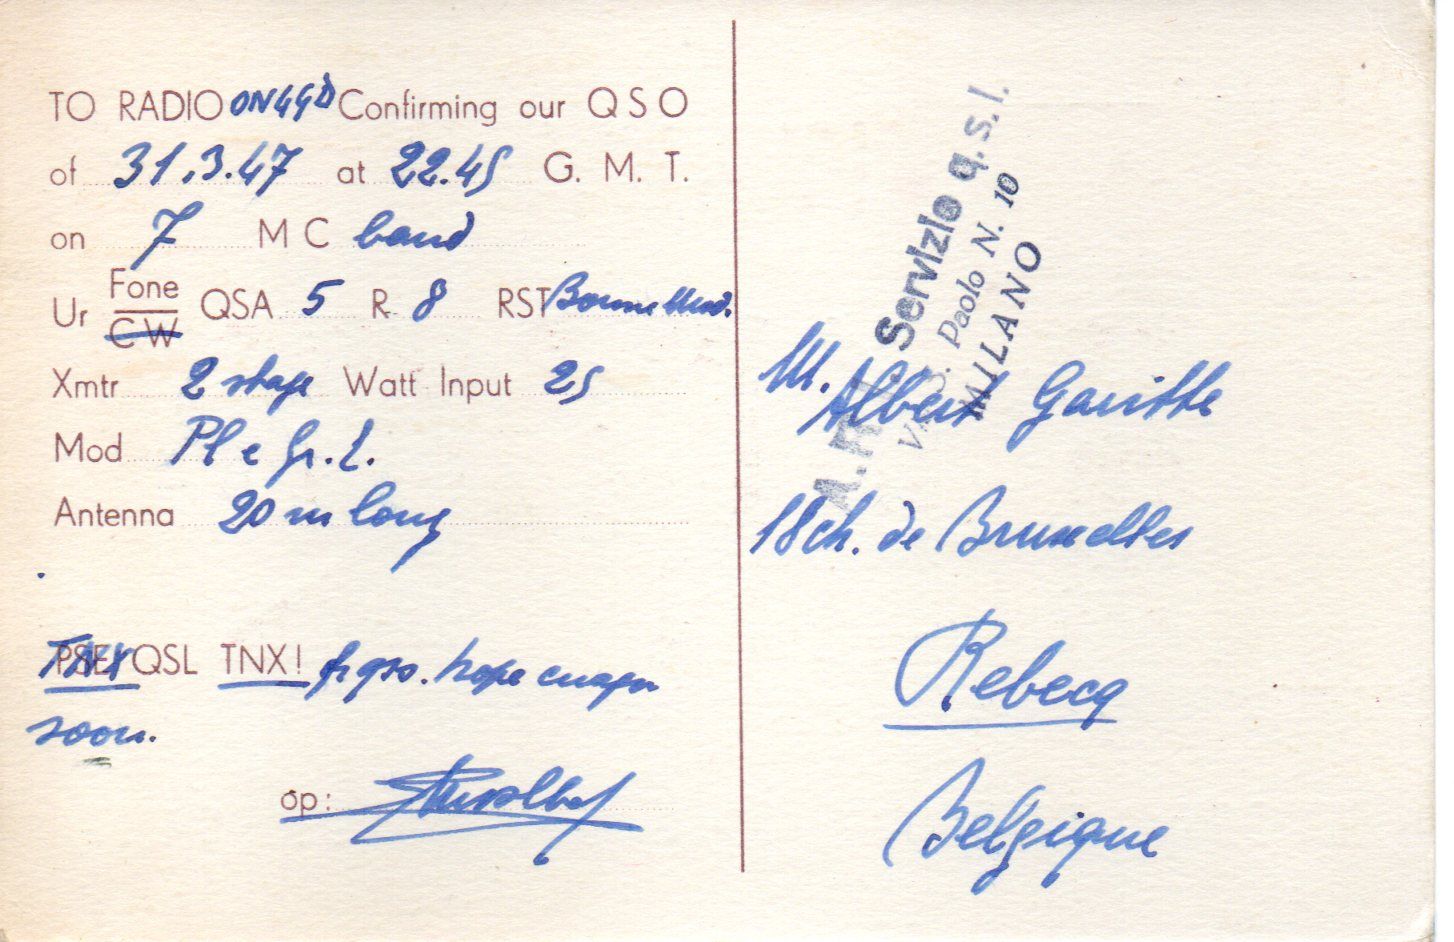 TO RADIO ON4GD Confirming our QSO
of 31.3.47 at 22.45 G. M. T.
on 7 M C band
Ur Fone CW QSA 5 R 8 RST Bonne Mod.
Xmtr 2 stage Watt Input 25
Mod Pl e Gr. 2.
Antenna 20 m long
TNX QSL TNX! fr qso. hope cuagn
soon.
op:
A.R.I. Servizio q.s.l.
Via S. Paolo N. 10
MILANO
M. Albert Garitte
18 ch. de Bruxelles
Rebecq
Belgique